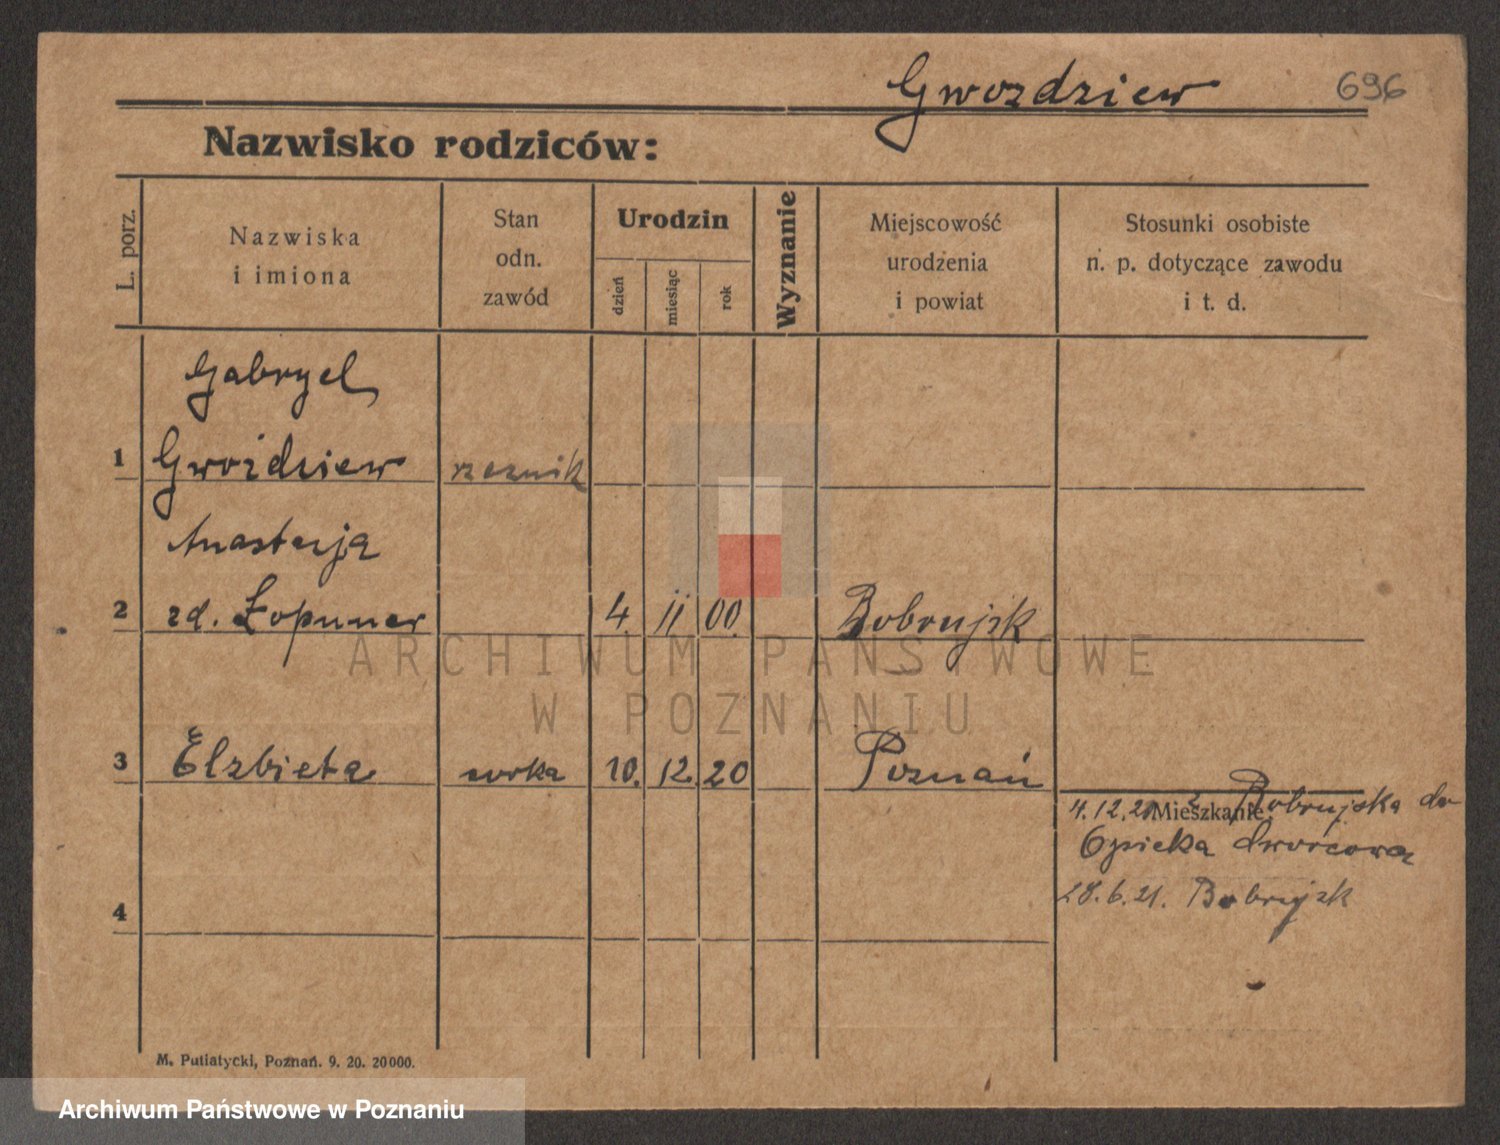 Gwozdziew 696
Nazwisko rodziców:
L. porz.
Nazwiska
i imiona
Stan
odn.
zawód
Urodzin
dzień
miesiąc
rok
Wyznanie
Miejscowość
urodzenia
i powiat
Stosunki osobiste
n. p. dotyczące zawodu
i t. d.
Gabryel
1 Gwoździew rzeznik
Anastazja
2 zd. Łopuner 4. 11 00. Bobrujsk
3 Elzbieta corka 10. 12. 20 Poznań
Mieszkanie:
4.12.20 z Bobrujska do
Opieka dworcowa
28.6.21. Bobrujsk
4
M. Putiatycki, Poznań. 9. 20. 20000.
ARCHIWUM PAŃSTWOWE
W POZNANIU
Archiwum Państwowe w Poznaniu